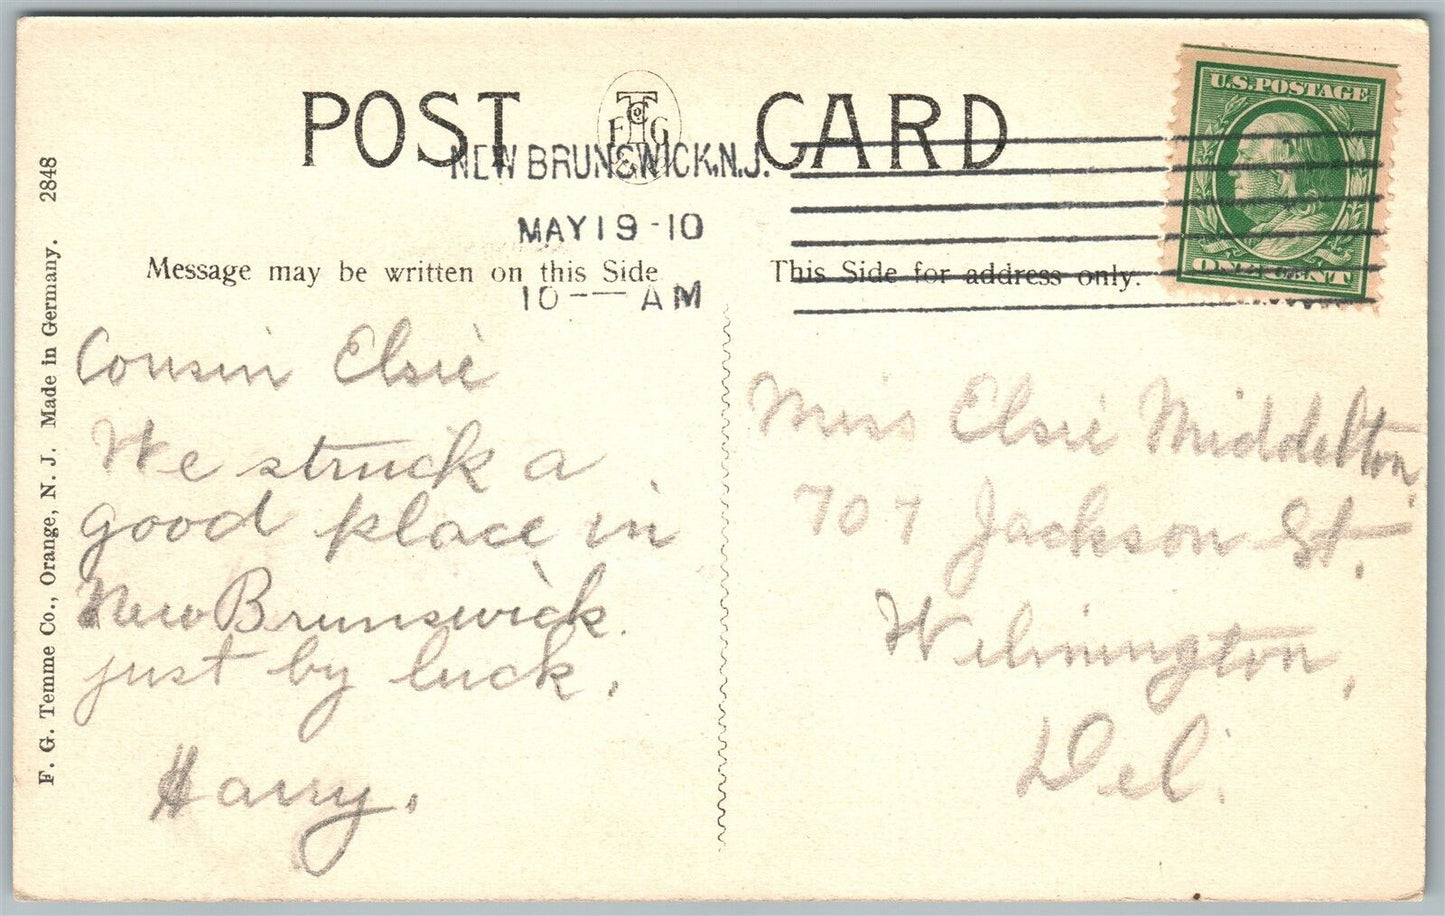 POST CARD
F T Co G
NEW BRUNSWICK, N.J.
MAY 19 - 10
10 — AM
U.S. POSTAGE
ONE CENT
Message may be written on this Side
This Side for address only.
F. G. Temme Co., Orange, N. J. Made in Germany. 2848
Cousin Elsie
We struck a
good place in
New Brunswick
just by luck.
Harry.
Miss Elsie Middelton,
707 Jackson St.
Wilmington,
Del.